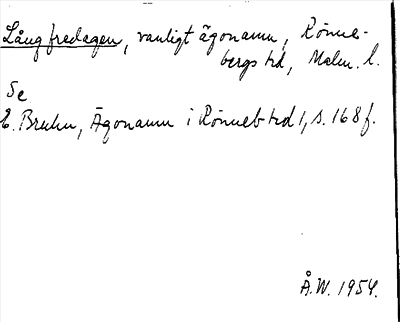 Långfredagen, vanligt ägonamn, Rönne-
bergs hd, Malm. l.
Se
E. Bruhn, Ägonamn i Rönneb hd 1, s. 168 f.
Å.W. 1954.